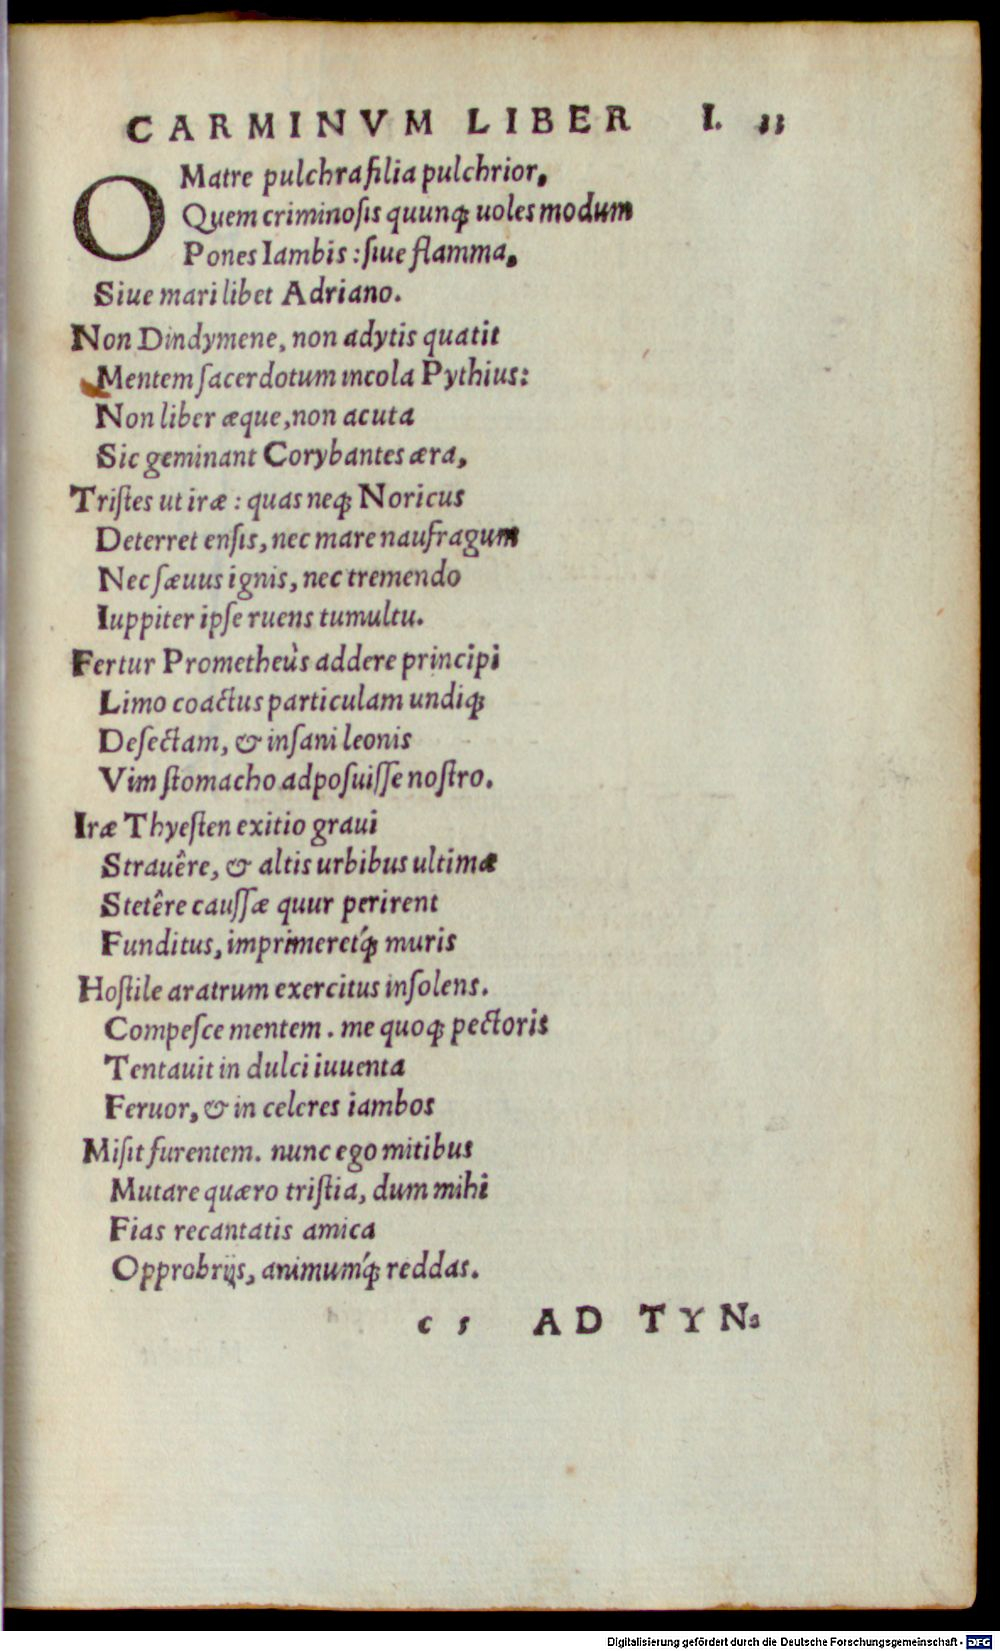 CARMINVM LIBER I. 33
O Matre pulchra filia pulchrior,
Quem criminoſis quunq; uoles modum
Pones Iambis: ſiue flamma,
Siue mari libet Adriano.
Non Dindymene, non adytis quatit
Mentem ſacerdotum incola Pythius:
Non liber æque, non acuta
Sic geminant Corybantes æra,
Triſtes ut iræ: quas neq; Noricus
Deterret enſis, nec mare naufragum
Nec ſæuus ignis, nec tremendo
Iuppiter ipſe ruens tumultu.
Fertur Prometheùs addere principi
Limo coactus particulam undiq;
Deſectam, & inſani leonis
Vim ſtomacho adpoſuiſſe noſtro.
Iræ Thyeſten exitio graui
Strauêre, & altis urbibus ultimæ
Stetêre cauſſæ quur perirent
Funditus, imprimeret́q; muris
Hoſtile aratrum exercitus inſolens.
Compeſce mentem. me quoq; pectoris
Tentauit in dulci iuuenta
Feruor, & in celeres iambos
Miſit furentem. nunc ego mitibus
Mutare quæro triſtia, dum mihi
Fias recantatis amica
Opprobrijs, animuḿq; reddas.
c 5 AD TYN-
Digitalisierung gefördert durch die Deutsche Forschungsgemeinschaft - DFG